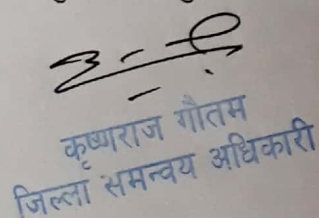 कृष्णराज गौतम
जिल्ला समन्वय अधिकारी